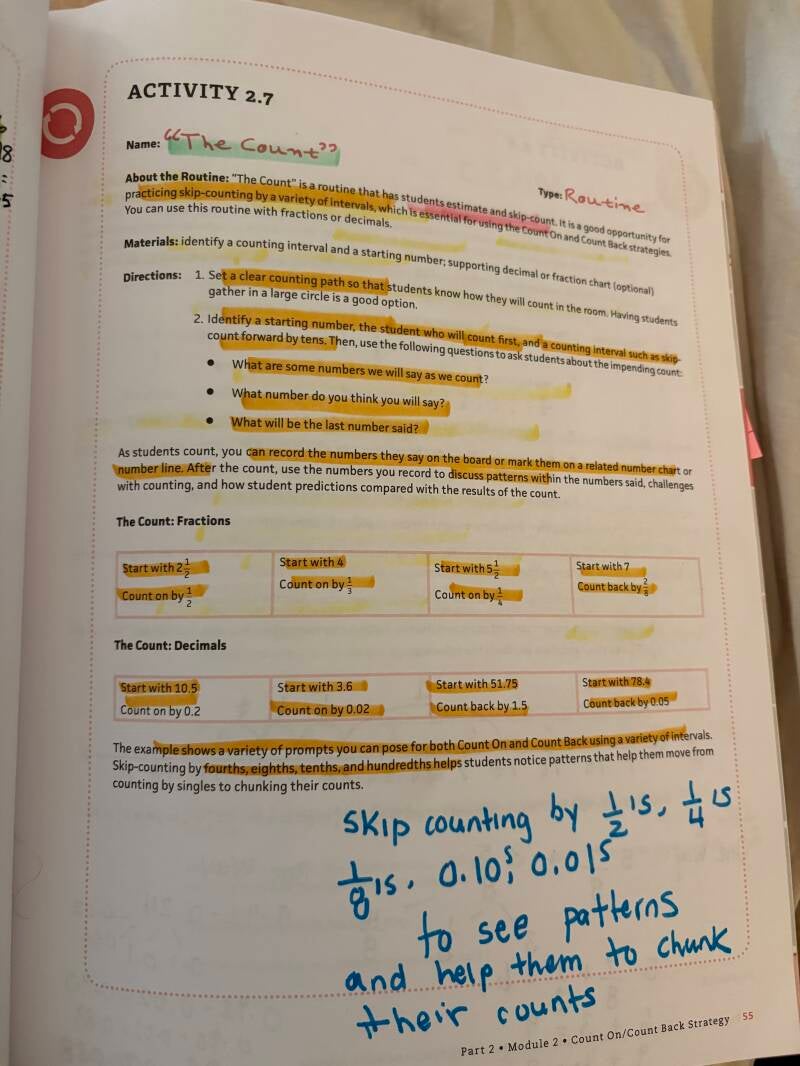 8
=
5
ACTIVITY 2.7
Name: "The Count"
Type: Routine
About the Routine: "The Count" is a routine that has students estimate and skip-count. It is a good opportunity for
practicing skip-counting by a variety of intervals, which is essential for using the Count On and Count Back strategies.
You can use this routine with fractions or decimals.
Materials: identify a counting interval and a starting number; supporting decimal or fraction chart (optional)
Directions: 1. Set a clear counting path so that students know how they will count in the room. Having students
gather in a large circle is a good option.
2. Identify a starting number, the student who will count first, and a counting interval such as skip-
count forward by tens. Then, use the following questions to ask students about the impending count:
• What are some numbers we will say as we count?
• What number do you think you will say?
• What will be the last number said?
As students count, you can record the numbers they say on the board or mark them on a related number chart or
number line. After the count, use the numbers you record to discuss patterns within the numbers said, challenges
with counting, and how student predictions compared with the results of the count.
The Count: Fractions
Start with 2 1/2
Count on by 1/2
Start with 4
Count on by 1/3
Start with 5 1/2
Count on by 1/4
Start with 7
Count back by 2/8
The Count: Decimals
Start with 10.5
Count on by 0.2
Start with 3.6
Count on by 0.02
Start with 51.75
Count back by 1.5
Start with 78.4
Count back by 0.05
The example shows a variety of prompts you can pose for both Count On and Count Back using a variety of intervals.
Skip-counting by fourths, eighths, tenths, and hundredths helps students notice patterns that help them move from
counting by singles to chunking their counts.
Skip counting by 1/2's, 1/4's
1/8's, 0.10s, 0.01s
to see patterns
and help them to chunk
their counts
Part 2 • Module 2 • Count On/Count Back Strategy 55